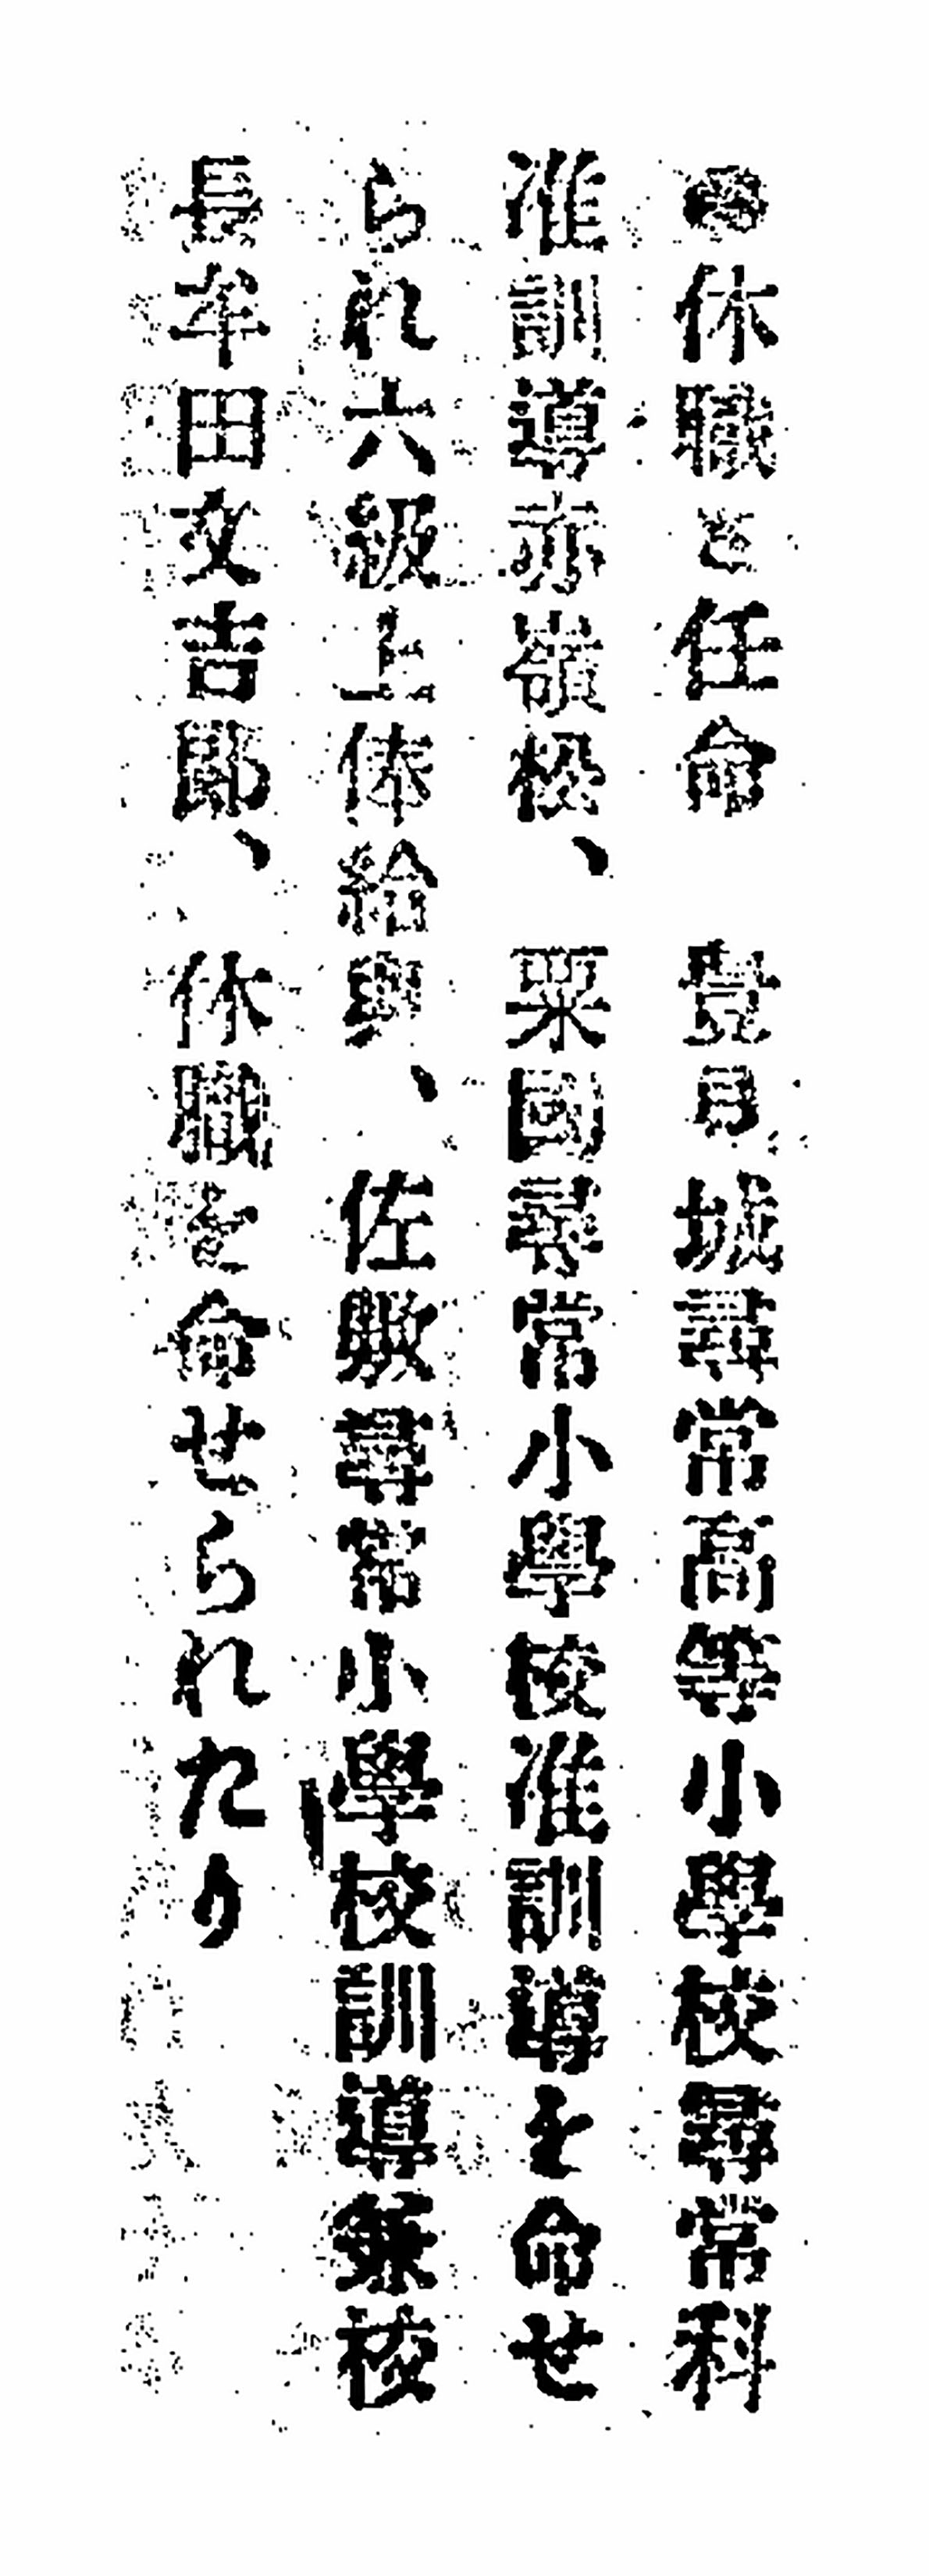 ◎休職と任命　豊見城尋常高等小學校尋常科
准訓導赤嶺松、粟國尋常小學校准訓導を命せ
られ六級上俸給與、佐敷尋常小學校訓導兼校
長牟田文吉郎、休職を命せられたり